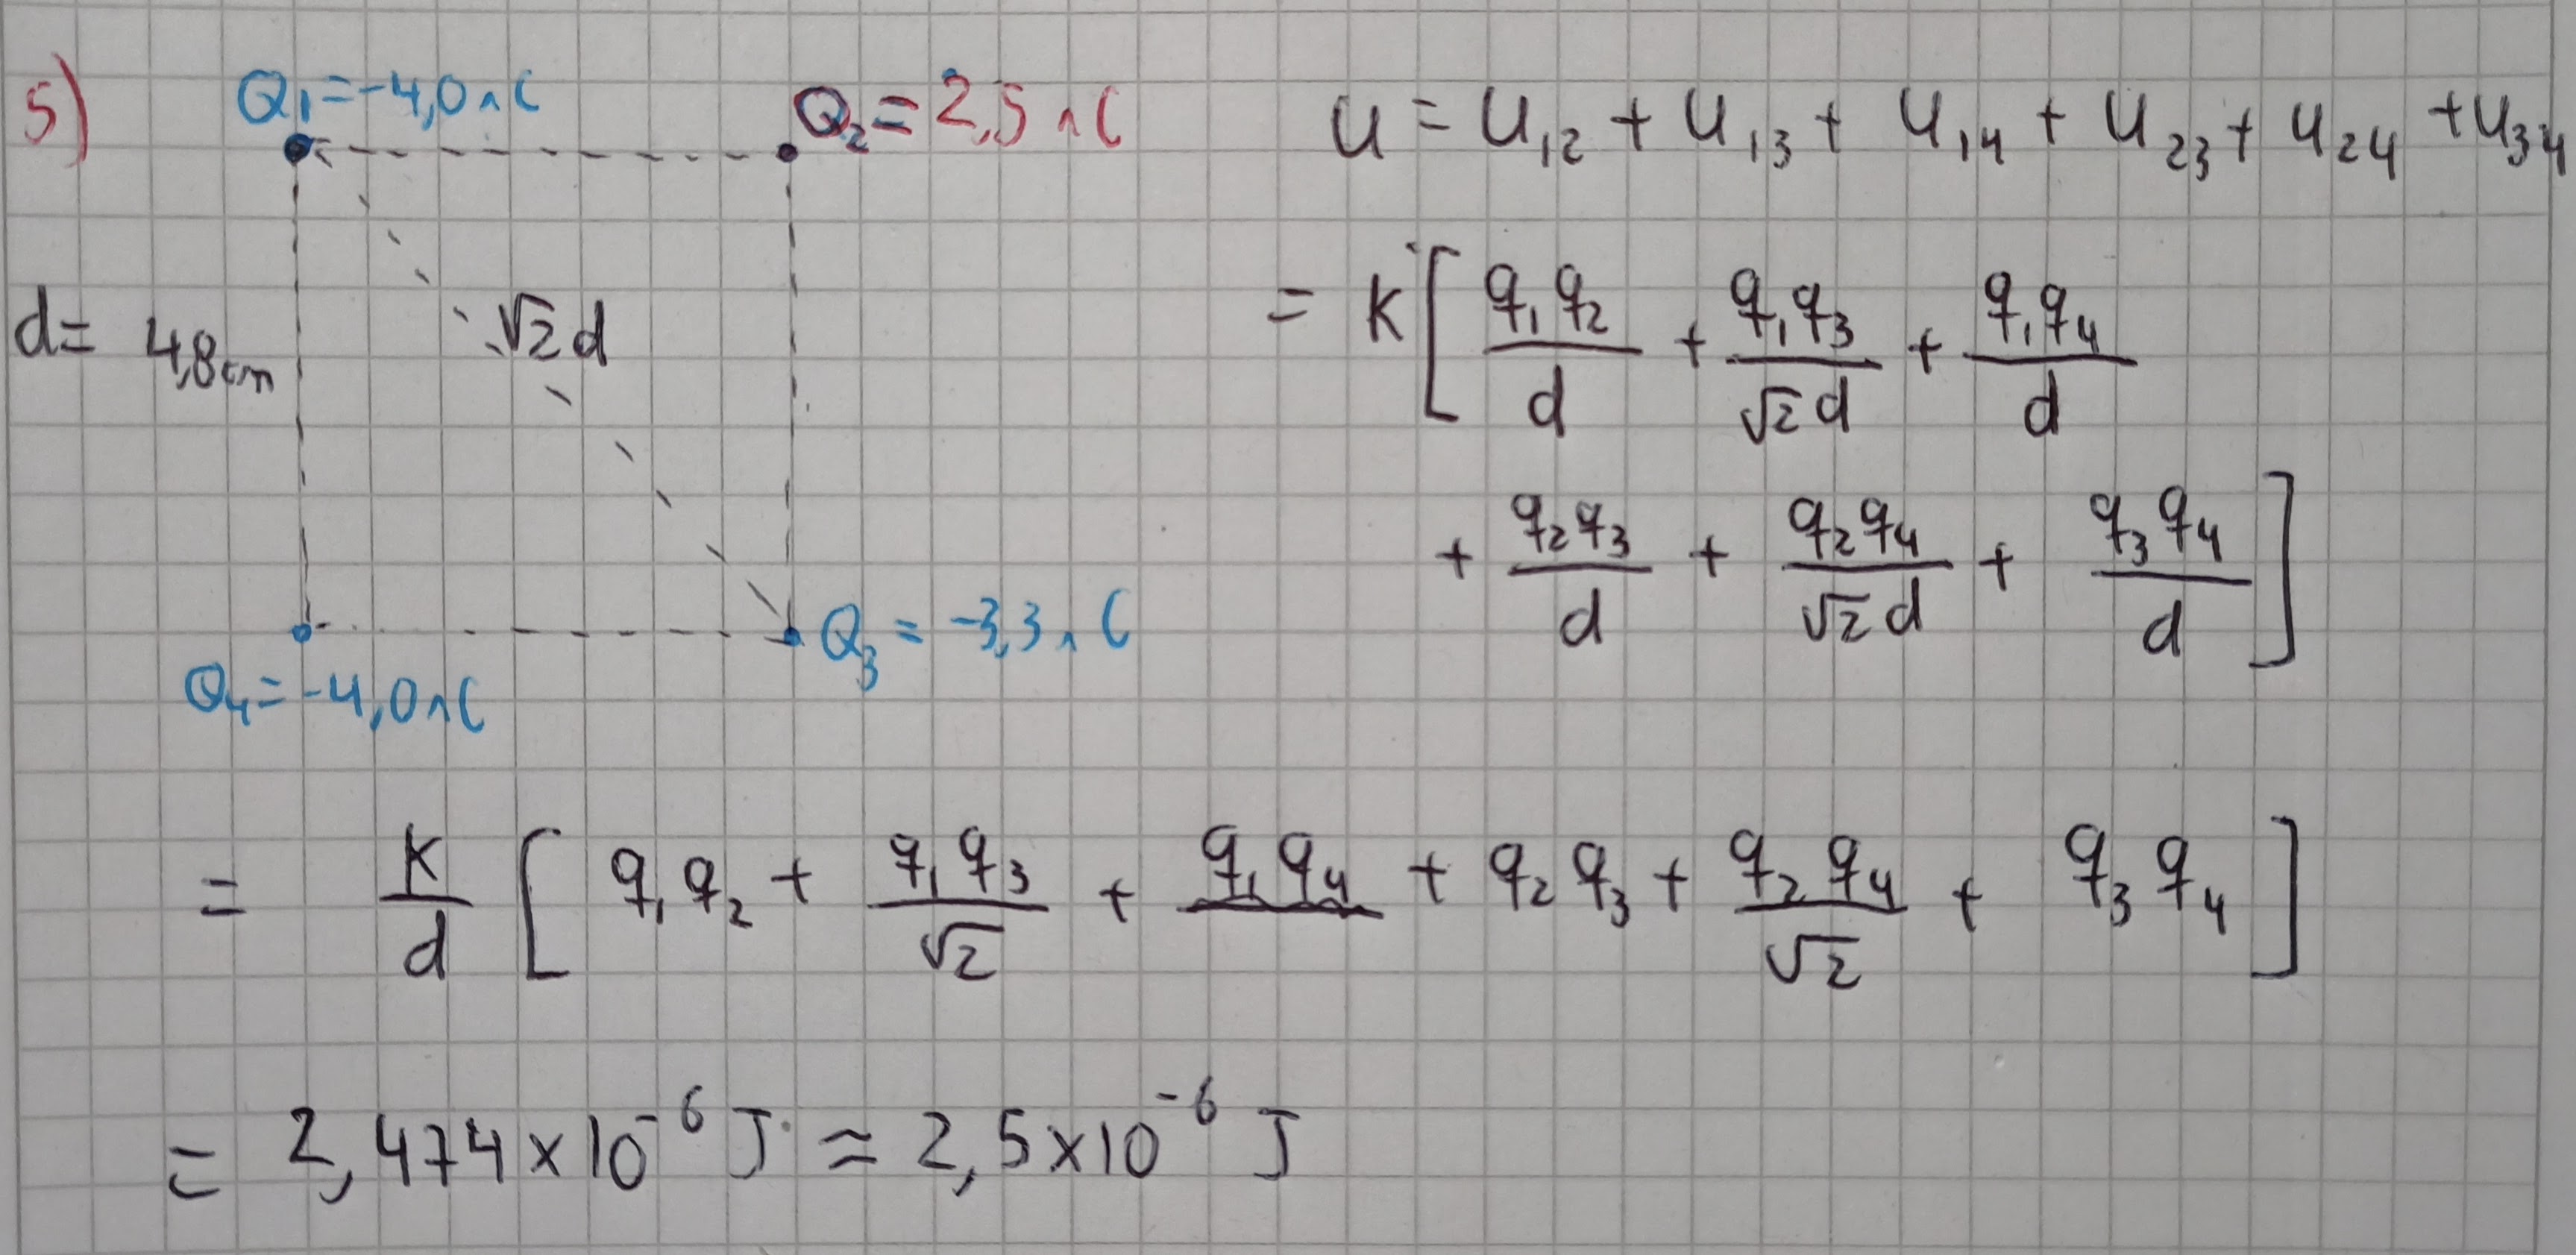 5)
Q₁=-4,0nC
Q₂=2,5nC
d= 4,8cm
√2d
Q₄=-4,0nC
Q₃=-3,3nC
U=U₁₂+U₁₃+U₁₄+U₂₃+U₂₄+U₃₄
=K[q₁q₂/d+q₁q₃/√2d+q₁q₄/d
+q₂q₃/d+q₂q₄/√2d+q₃q₄/d]
=K/d[q₁q₂+q₁q₃/√2+q₁q₄+q₂q₃+q₂q₄/√2+q₃q₄]
=2,474×10⁻⁶J≈2,5×10⁻⁶J